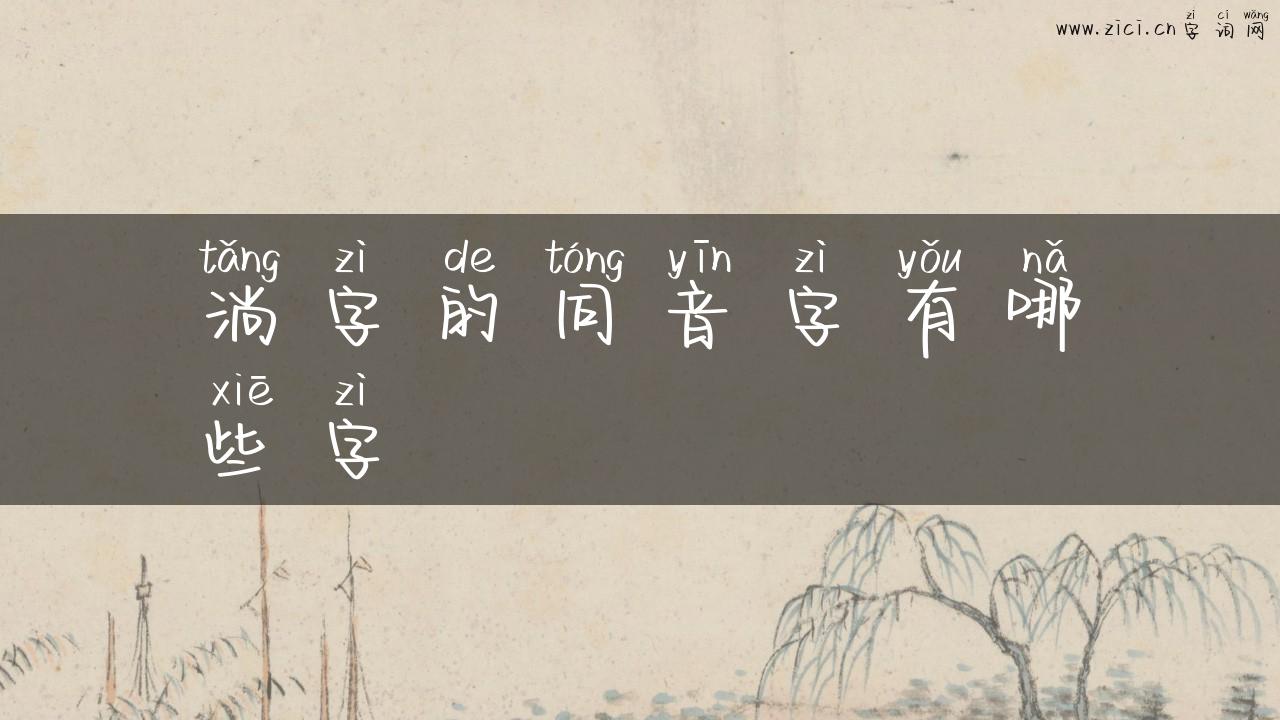 zì cí wǎng
www.zici.cn 字词网
tǎng zì de tóng yīn zì yǒu nǎ
淌字的同音字有哪
xiē zì
些字